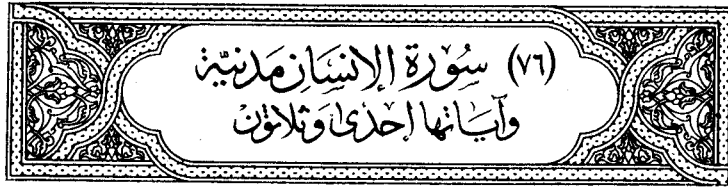 (٧٦) سُورَة الإنسَانِ مَدنيَّة
وآيَاتها إحْدىٰ وَثلاثونْ